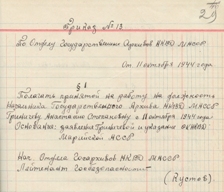 29
Приказ № 13
По Отделу Государственных Архивов НКВД МАССР
От 11 октября 1944 года
§ 1
Полагать принятой на работу на должность
Начальника Государственного Архива НКВД МАССР
Анастасию Степановну с 11 октября 1944 года.
Основание: заявление и указание НКВД
Марийской АССР
Нач. Отдела Госархивов НКВД МАССР
Лейтенант госбезопасности-
(Кустов)